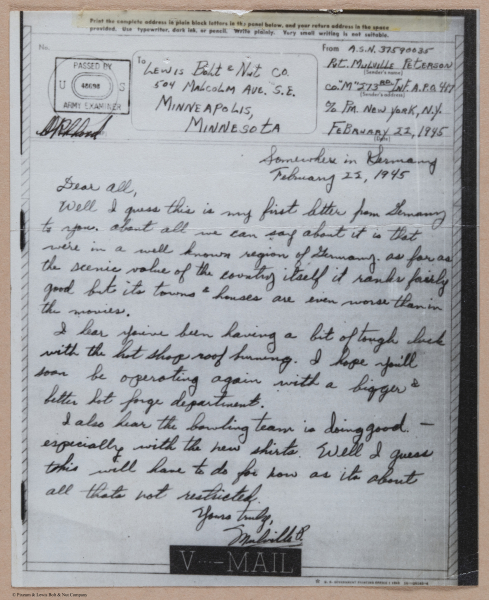 Print the complete address in plain block letters in the panel below, and your return address in the space
provided. Use typewriter, dark ink, or pencil. Write plainly. Very small writing is not suitable.
No.
PASSED BY
U S
48698
ARMY EXAMINER
To
Lewis Bolt & Nut Co.
504 Malcolm Ave. S.E.
Minneapolis,
Minnesota
From A.S.N. 37590035
Pvt. Mulville Peterson
(Sender's name)
Co. "M" 273RD Inf. A.P.O. 417
(Sender's address)
% P.M. New York, N.Y.
February 22, 1945
(Date)
Somewhere in Germany
February 22, 1945
Dear all,
Well I guess this is my first letter from Germany
to you. about all we can say about it is that
were in a well known region of Germany. as far as
the scenic value of the country itself it ranks fairly
good but its towns & houses are even worse than in
the movies.
I hear you've been having a bit of tough luck
with the hot shop roof burning. I hope you'll
soon be operating again with a bigger &
better hot forge department.
I also hear the bowling team is doing good –
especially with the new shirts. Well I guess
this will have to do for now as its about
all thats not restricted.
Yours truly,
Mulville P.
V···—MAIL
© Pozami & Lewis Bolt & Nut Company